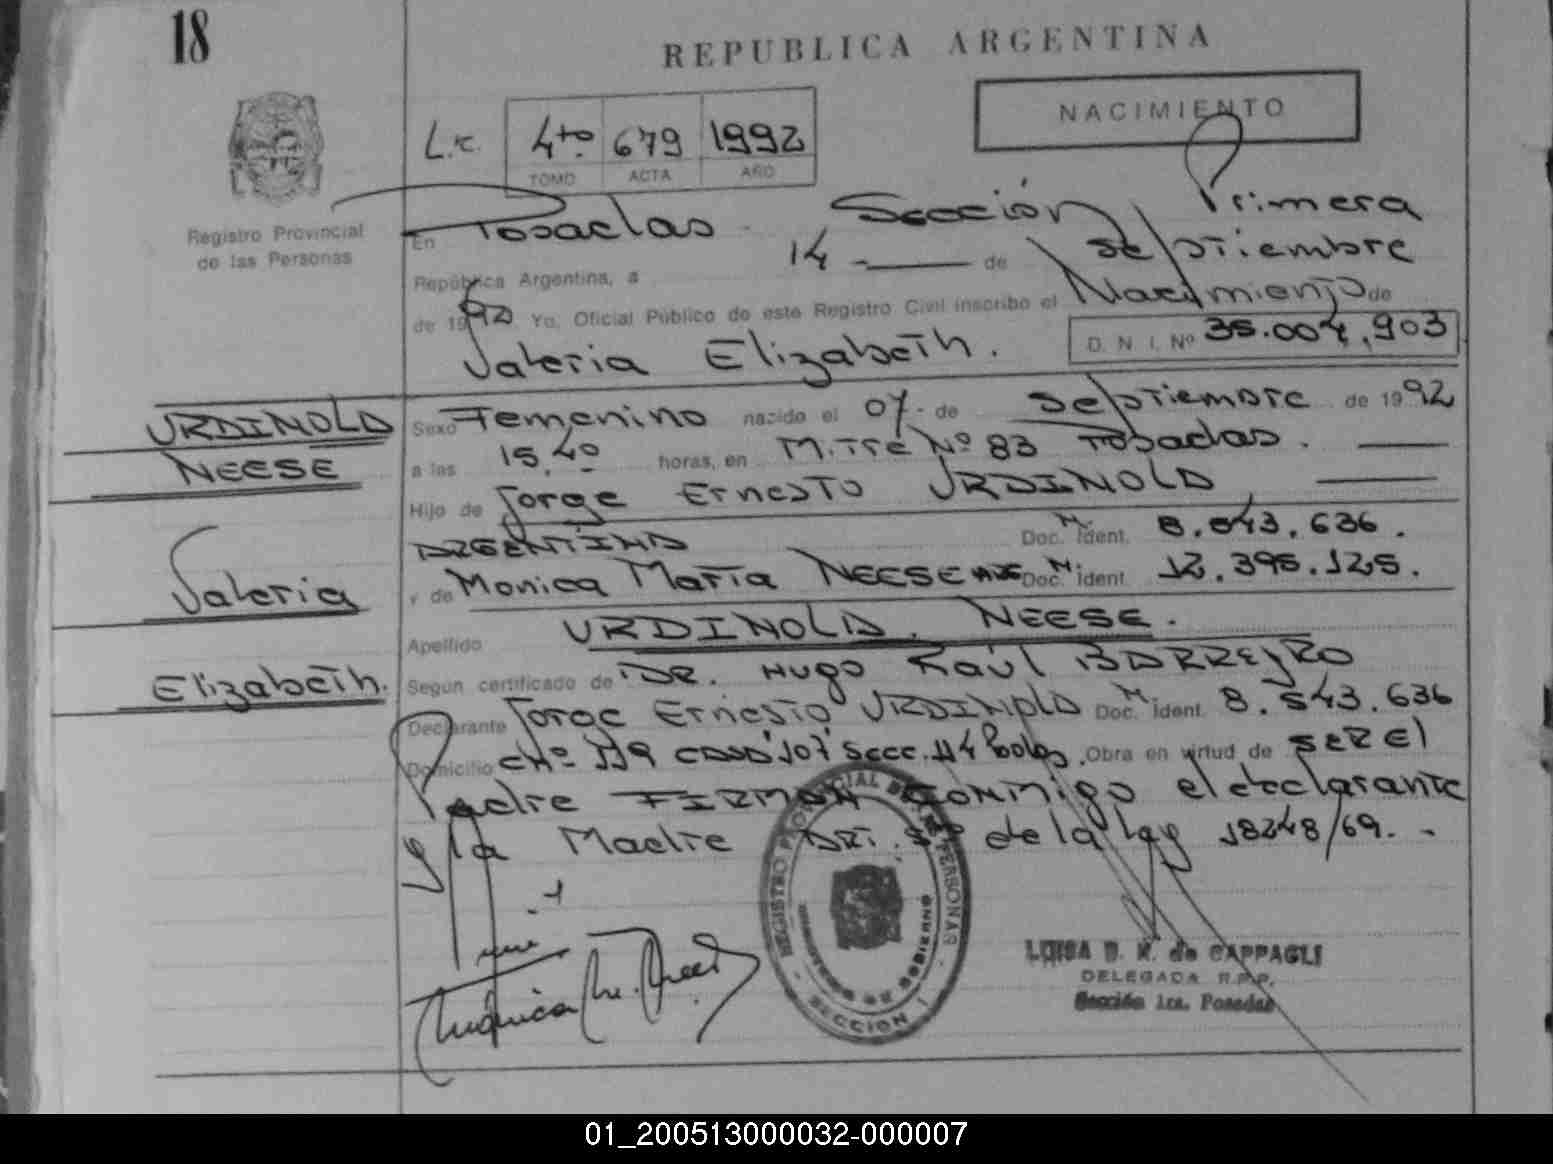 18
REPUBLICA ARGENTINA
NACIMIENTO
L.c. 4to 679 1992
TOMO ACTA AÑO
Registro Provincial
de las Personas
En Posadas - Sección Primera
República Argentina, a 14 - de Septiembre
de 1992 Yo, Oficial Público de este Registro Civil inscribo el Nacimiento de
Valeria Elizabeth. D. N. I. Nº 35.004.903
URDINOLA
NEESE
Valeria
Elizabeth.
Sexo Femenino nacido el 07 - de Septiembre de 1992
a las 15,40 horas, en Mitre Nº 83 Posadas.
Hijo de Jorge Ernesto URDINOLA
ARGENTINA Doc. M. Ident. 8.543.636.
y de Monica María NEESE Doc. M. Ident. 12.395.125.
Apellido URDINOLA. NEESE.
Según certificado de DR. Hugo Raúl BARREYRO
Declarante Jorge Ernesto URDINOLA Doc. M. Ident. 8.543.636
Domicilio CHº 119 107 Secc. Obra en virtud de SER El
Padre FIRMAN CONMigo el declarante
y la Madre ART. 5º de la Ley 18248/69. -
REGISTRO PROVINCIAL DE LAS PERSONAS
MINISTERIO DE GOBIERNO
- SECCION I -
LUISA B. K. de CAPPAGLI
DELEGADA R.P.P.
Sección 1ra. Posadas
01_200513000032-000007